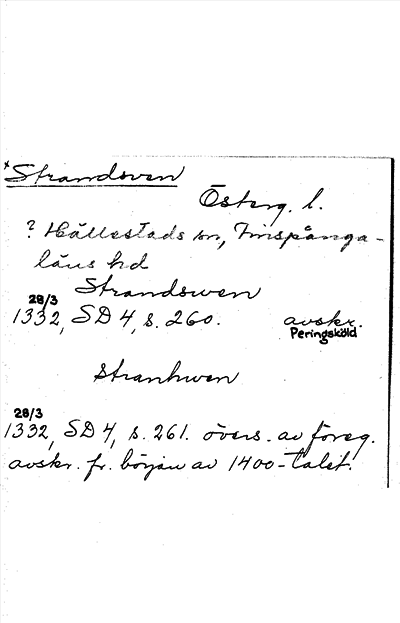 *Strandsven
Österg. l.
? Hällestads sn, Finspånga-
läns hd
Strandswen
28/3
1332, SD 4, s. 260. avskr.
Peringsköld
Stranhwen
28/3
1332, SD 4, s. 261. övers. av föreg.
avskr. fr. början av 1400-talet.